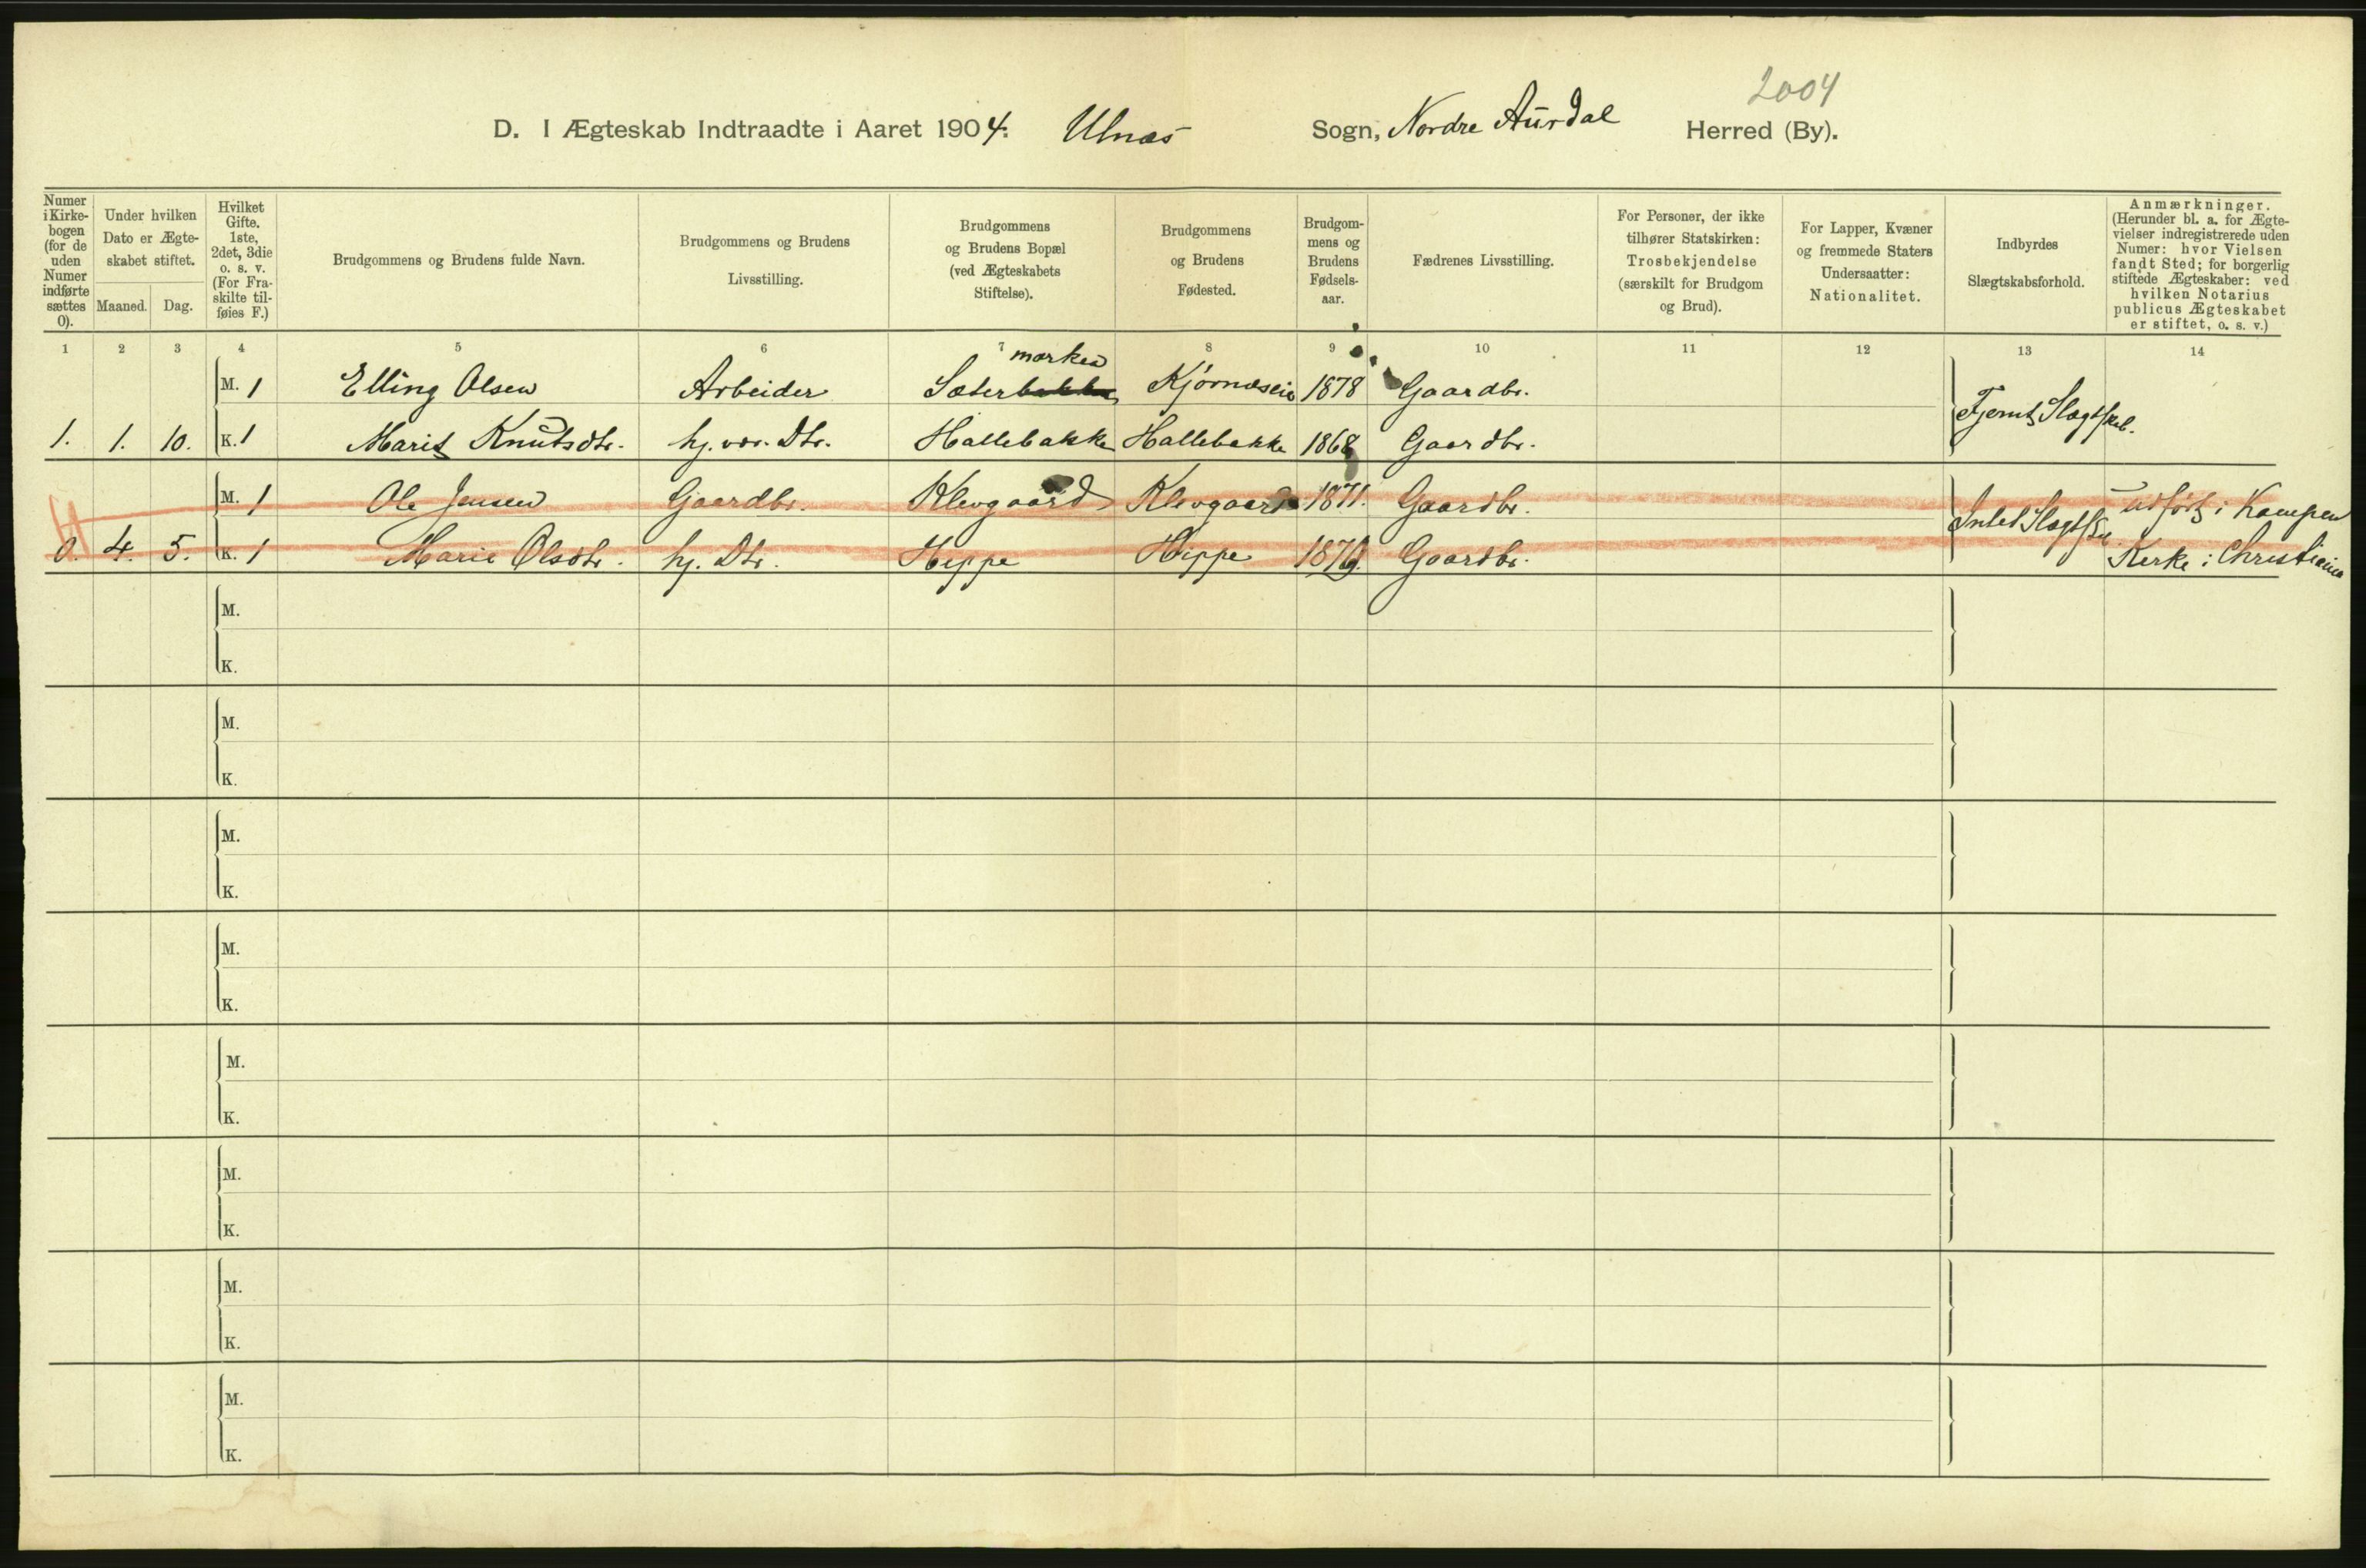 2004
D. I Ægteskab Indtraadte i Aaret 1904. Ulnæs Sogn, Nordre Aurdal Herred (By).
Numer i Kirke-bogen (for de uden Numer indførte sættes 0).
Under hvilken Dato er Ægte-skabet stiftet.
Maaned. Dag.
Hvilket Gifte. 1ste, 2det, 3die o. s. v. (For Fra-skilte til-føies F.)
Brudgommens og Brudens fulde Navn.
Brudgommens og Brudens Livsstilling.
Brudgommens og Brudens Bopæl (ved Ægteskabets Stiftelse).
Brudgommens og Brudens Fødested.
Brudgom-mens og Brudens Fødsels-aar.
Fædrenes Livsstilling.
For Personer, der ikke tilhører Statskirken: Trosbekjendelse (særskilt for Brudgom og Brud).
For Lapper, Kvæner og fremmede Staters Undersaatter: Nationalitet.
Indbyrdes Slægtskabsforhold.
Anmærkninger. (Herunder bl. a. for Ægte-vielser indregistrerede uden Numer: hvor Vielsen fandt Sted; for borgerlig stiftede Ægteskaber: ved hvilken Notarius publicus Ægteskabet er stiftet, o. s. v.)
1 2 3 4 5 6 7 8 9 10 11 12 13 14
marken
M. 1 Elling Olsen Arbeider Sæterbakke 1878 Gaardbr.
Fjernt Slægtskab.
1. 1. 10. K. 1 Marit Knutsdtr. hj. vær. Dtr. Hallebakke Hallebakke 1868 Gaardbr.
M. 1 Ole Jensen Gaardbr. Klevgaard Klevgaard 1871. Gaardbr. udført i Kampen
0. 4. 5. K. 1 Marie Olsdtr. hj. Dtr. Hippe Hippe 1879. Gaardbr. Kirke i Christiania
M.
K.
M.
K.
M.
K.
M.
K.
M.
K.
M.
K.
M.
K.
M.
K.